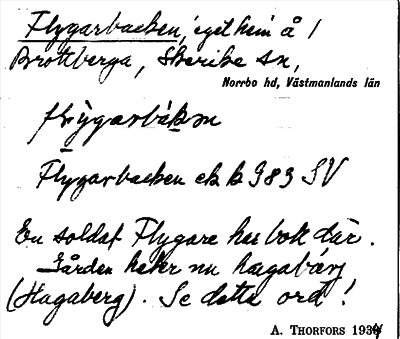 Flygarbacken, eget hem å /
Brottberga, Skerike sn,
Norrbo hd, Västmanlands län
flỳgarbákən
Flygarbacken ek bl 983 SV
En soldat Flygare har bott där.
Gården heter nu hagabærj
(Hagaberg). Se detta ord!
A. THORFORS 1934